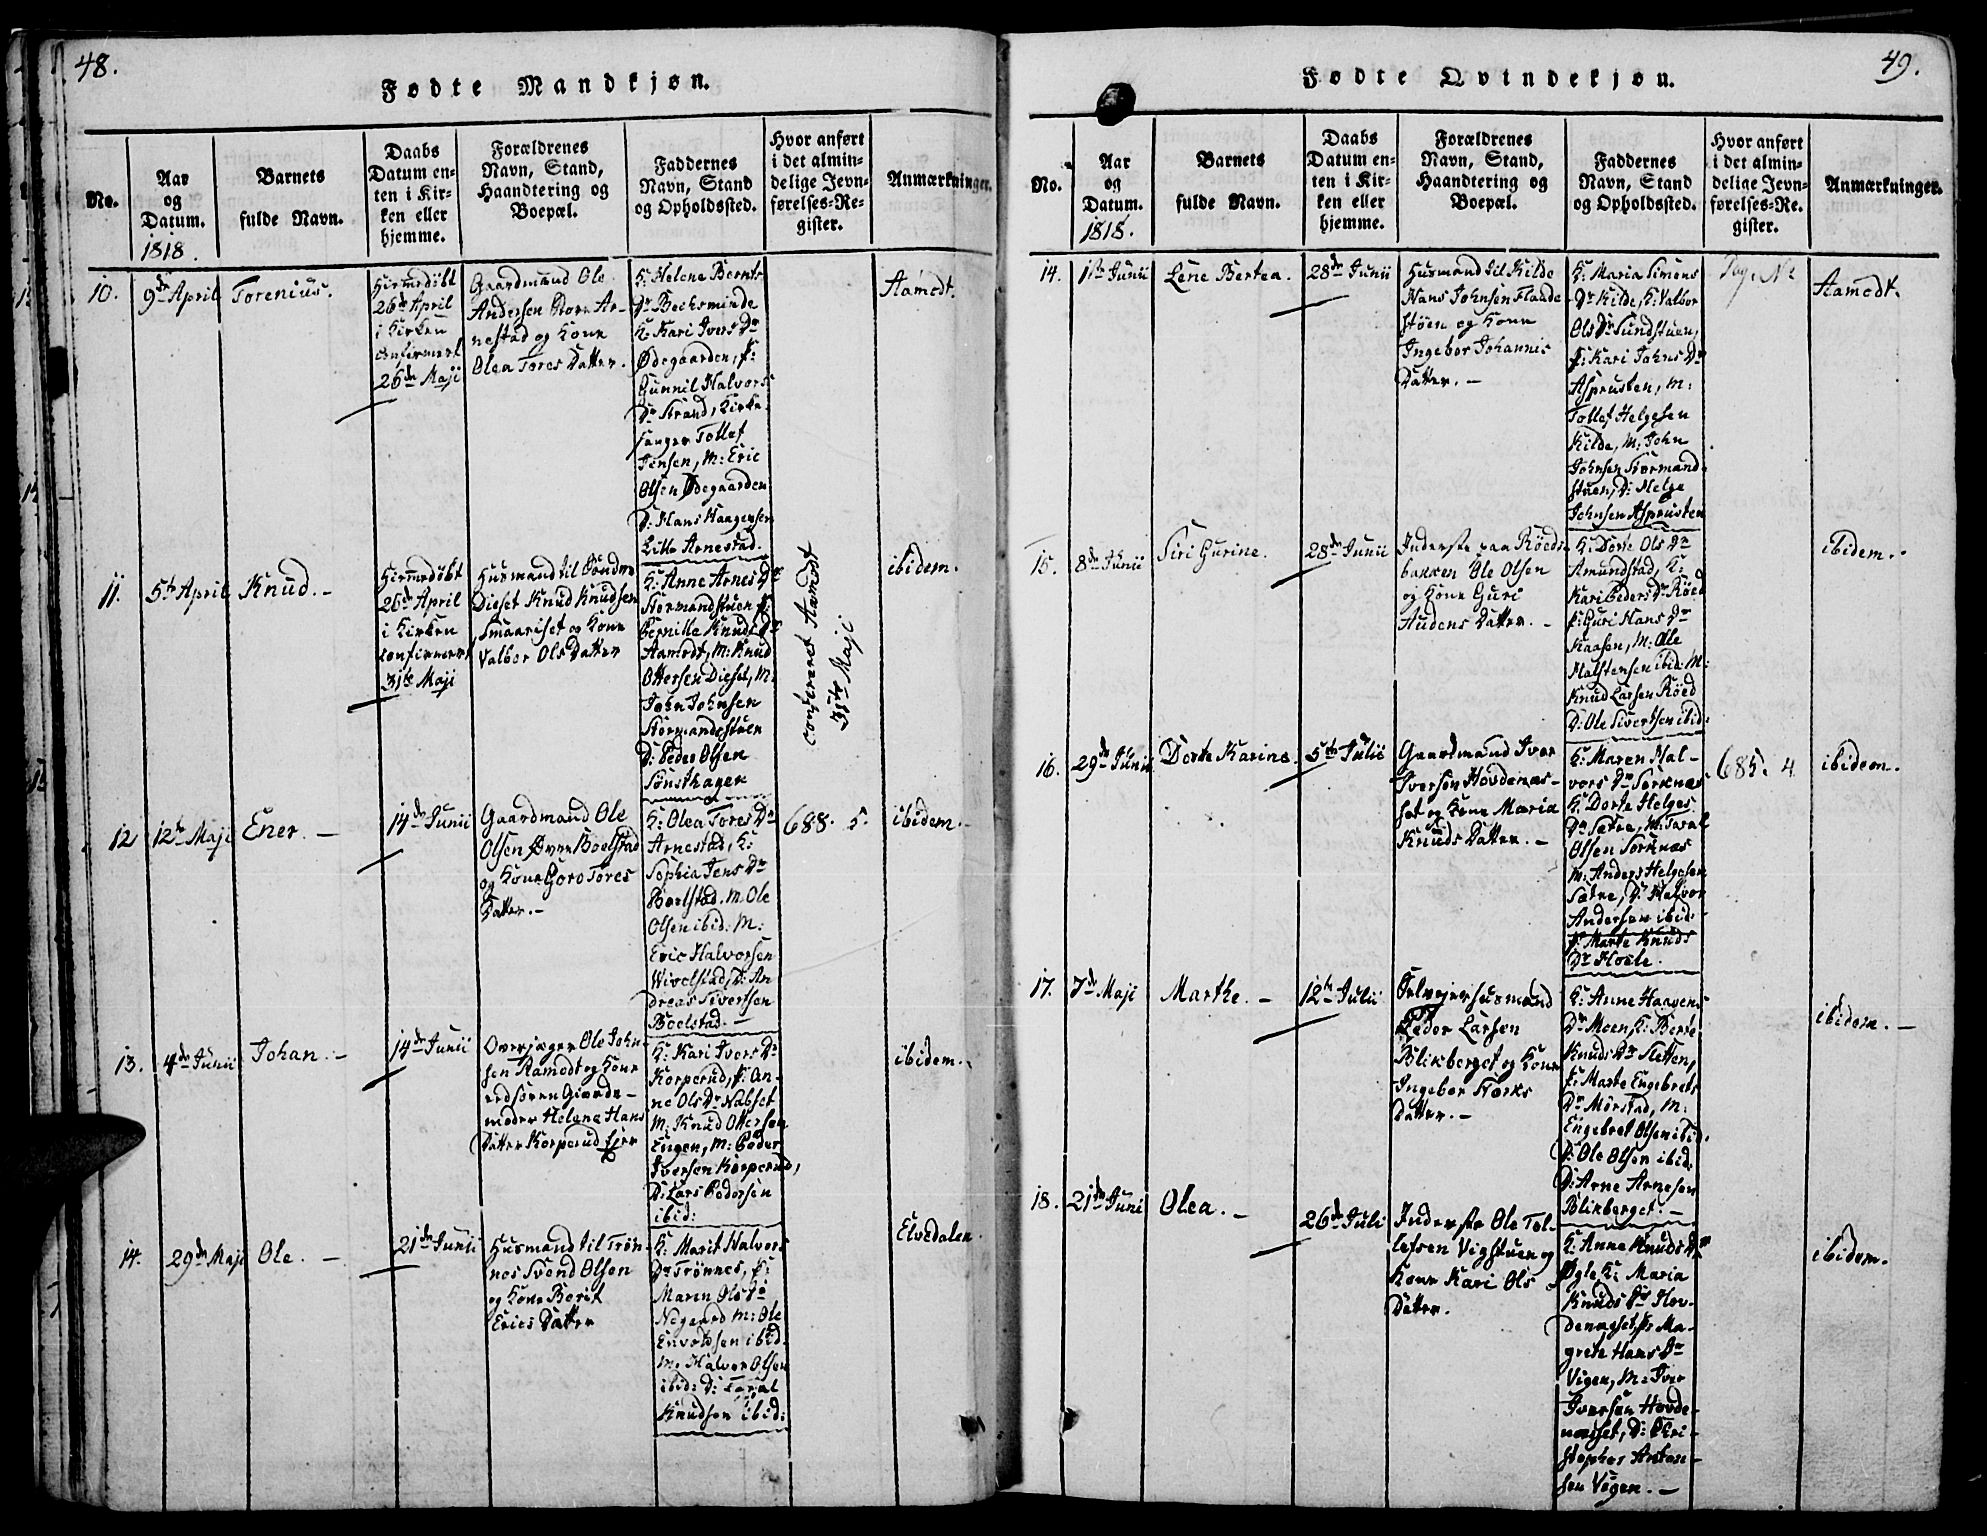 48.
Fødte Mandkjøn.
No.
Aar
og
Datum.
1818.
Barnets
fulde Navn.
Daabs
Datum en-
ten i Kir-
ken eller
hjemme.
Forældrenes
Navn, Stand,
Haandtering og
Boepæl.
Faddernes
Navn, Stand
og Opholdssted.
Hvor anført
i det almin-
delige Jevn-
førelses-Re-
gister.
Anmærkninger.
10.
9de April
Torenius.
Hiemmedöbt
26de April
i Kirken
confirmert
26de Maji
Gaardmand Ole
Andersen Store Ar-
nestad og Kone
Olea Tores Datter.
K: Helene Bernts
Dr Beckeminde
K: Kari Ivers Dr
Ødegaarden, P:
Gunnil Halvors
Dr Strand, Kirke
sanger Tollef
Jensen, M: Eric
Olsen Ødegaarden
D: Hans Haagensen
Lille Arnestad.
Aamodt.
11.
5te April
Knud. -
Hiemmedöbt
26de April
i Kirken
confirmert
31te Maji
Husmand til Söndre
Dieset Knud Knudsen
Smaariset og Kone
Valbor Ols Datter
K: Anne Arnes Dr
Stormandstuen P:
Pernille Knuds Dr
Aamodt, M: Knud
Ottersen Dieset, M:
John Johnsen
Stormandsstuen
D: Peder Olsen
Sönsthagen
confereret Aamodt
31te Maji
ibidem.
12
12te Maji
Ener. -
14de Junii
Gaardmand Ole
Olsen Øvre Boelstad
og Kone Goro Tores
Datter. -
K: Olea Tores Dr
Arnestad, K:
Sophia Jens Dr
Boelstad. M. Ole
Olsen ibid: M:
Eric Halvorsen
Wivelstad, D: An
dreas Sivertsen
Boelstad. -
688. 5.
ibidem.
13.
4de Junii
Johan. -
14de Junii
Overjæger Ole John
sen Aamodt og Kone
moder Helene Hans
Datter Korperud Eier
K: Kari Ivers Dr
Korperud, P: An-
ne Ols Dr Nabset
M: Knud Ottersen
Engen, M: Peder
Iversen Korperud,
D: Lars Pedersen
ibid:
ibidem.
14.
29de Maji
Ole. -
21de Junii
Husmand til Trön-
nes Svend Olsen
og Kone Berit
Erics Datter
K: Marit Halvors
Dr Trönnes, P:
Maren Ols Dr
Negaard M: Ole
Envoldsen ibid.
M: Halvor Olsen
ibid: D: Taral
Knudsen ibid:
Elvedalen.
49.
Fødte Qvindekjøn.
No.
Aar
og
Datum.
1818.
Barnets
fulde Navn.
Daabs
Datum en-
ten i Kir-
ken eller
hjemme.
Forældrenes
Navn, Stand,
Haandtering og
Boepæl.
Faddernes
Navn, Stand
og Opholdssted.
Hvor anført
i det almin-
delige Jevn-
førelses-Re-
gister.
Anmærkninger.
14.
1ste Junii
Lene Bertea.
28de Junii
Husmand til Kilde
Hans Johnsen Flaade
støen og Kone
Ingebor Johannis
Datter. -
K: Maria Simens
Dr Kilde, K: Valbor
Ols Dr Sundstuen,
P: Kari Johns Dr
Asprusten, M:
Tollef Helgesen
Kilde, M: John
Johnsen Stormand-
stuen, D: Helge
Johnsen Asprusten
Pag. No
Aamodt.
15.
8de Junii
Siri Gurine.
28de Junii
Inderste paa Röeds
bakken Ole Olsen
og Kone Guri
Audens Datter. -
K: Dorte Ols Dr
Amundstad, K:
Kari Peders Dr Röed
P: Guri Hans Dr
Kaasen, M: Ole
Halstensen ibid: M:
Knud Larsen Röed
D: Ole Sivertsen ibid:
ibidem.
16.
29de Junii
Dorte Karine.
5te Julii
Gaardmand Iver
Iversen Hovdenæs-
set og Kone Maria
Knuds Datter. -
K: Maren Hal-
vors Dr Sorknæs
K: Dorte Helges
Dr Sætre, M: Taral
Olsen Sorknæs
M: Anders Helgesen
Sætre, D: Halvor
Andersen ibid:
P: Marte Knuds
Dr Hosle.
685. 4
ibidem.
17.
7de Maji
Marthe. -
12te Julii
Selvejerhusmand
Peder Larsen
Blikberget og Kone
Ingebor Størks
Datter. -
K: Anne Haagens
Dr Moen K: Berte
Knuds Dr Sletten,
P: Marte Engebrets
Dr Mörstad, M:
Engebret Olsen ibid:
D: Ole Olsen ibid:
D: Arne Arnesen
Blikberget. -
ibidem. -
18.
21de Juni
Olea. -
26de Juli
Inderste Ole Tol-
lefsen Vigstuen og
Kone Kari Ols
Datter.
K: Anne Knuds Dr
Øgle K: Maria
Knuds Dr Hov-
denæset, P: Ma-
grete Hans Dr
Vigen, M: Iver
Iversen Hovde-
næset, D: Chri-
stopher Anton-
sen Vigen. -
ibidem.